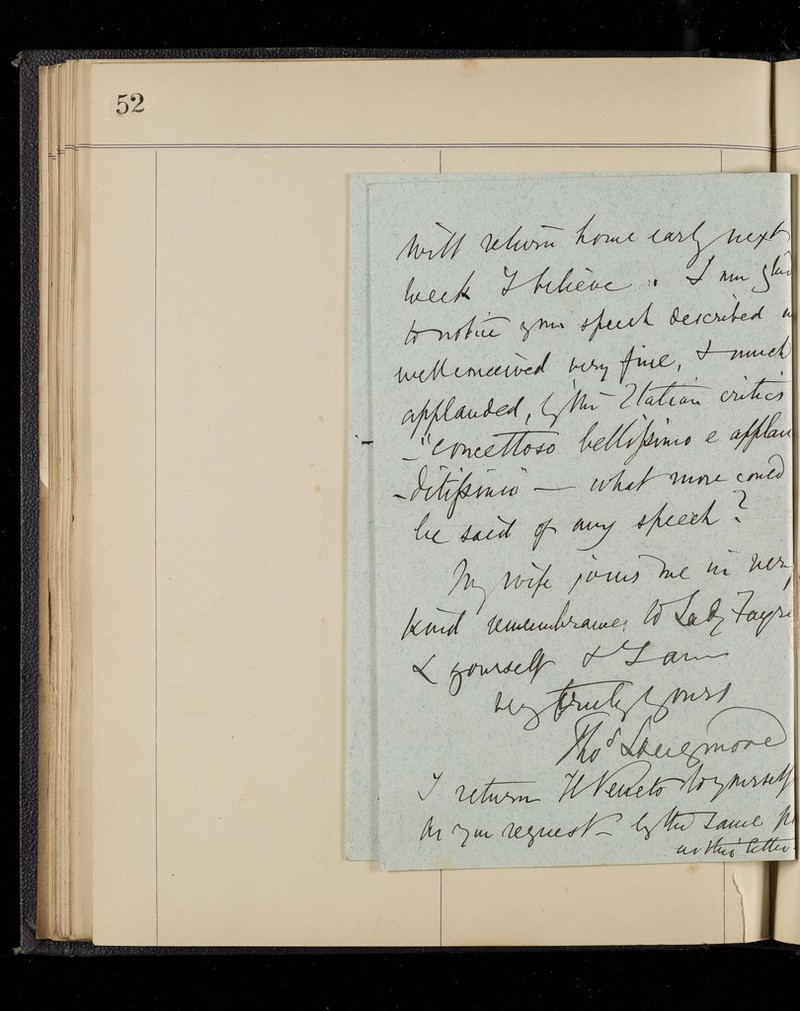 52
will return home early next
week I believe. I am
to notice your speech described
well conceived very fine, & much
applauded, by the Italian critics
- "concettoso bellissimo e applau
-ditissimo" — what more could
be said of any speech?
My wife joins me in very
kind remembrances to Lady
& yourself & I am
very truly yours
Thos
I return Il Veneto to yourself
your request - by the same
as this letter